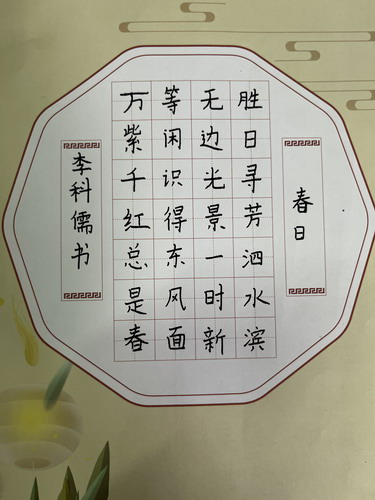 春日
胜日寻芳泗水滨
无边光景一时新
等闲识得东风面
万紫千红总是春
李科儒书